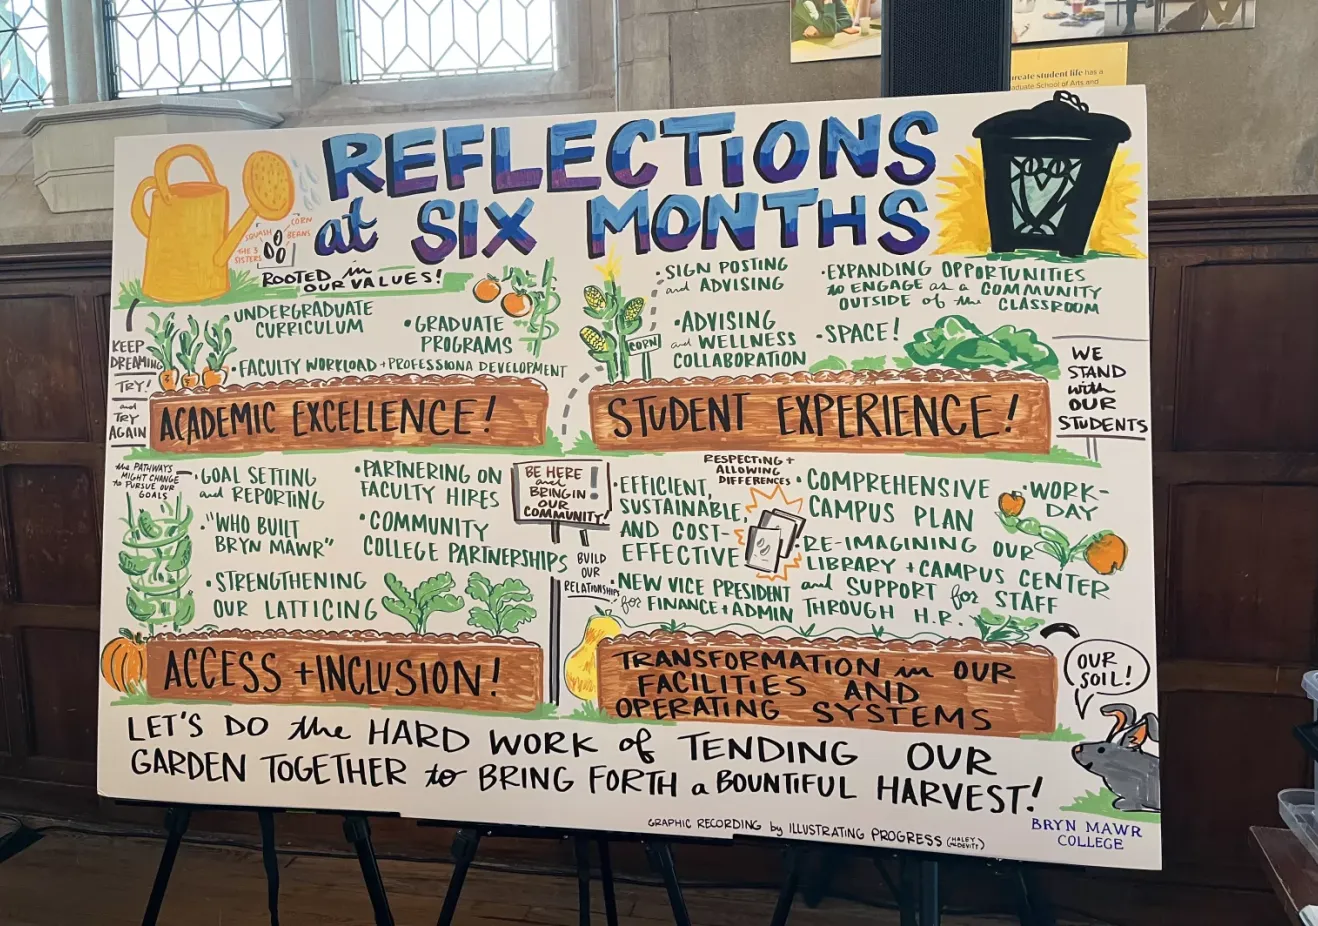 ureate student life has a
aduate School of Arts and
REFLECTIONS
at SIX MONTHS
CORN
SQUASH BEANS
THE 3
SISTERS
ROOTED in
OUR VALUES!
UNDERGRADUATE
CURRICULUM
• GRADUATE
PROGRAMS
• FACULTY WORKLOAD + PROFESSIONA DEVELOPMENT
KEEP
DREAMING
TRY!
and
TRY
AGAIN
ACADEMIC EXCELLENCE!
• SIGN POSTING
and ADVISING
• ADVISING
and WELLNESS
COLLABORATION
CORN
• EXPANDING OPPORTUNITIES
to ENGAGE as a COMMUNITY
OUTSIDE of the CLASSROOM
• SPACE!
STUDENT EXPERIENCE!
WE
STAND
with
OUR
STUDENTS
the PATHWAYS
MIGHT CHANGE
to PURSUE OUR
GOALS
• GOAL SETTING
and REPORTING
• "WHO BUILT
BRYN MAWR"
• STRENGTHENING
OUR LATTICING
• PARTNERING ON
FACULTY HIRES
• COMMUNITY
COLLEGE PARTNERSHIPS
ACCESS + INCLUSION!
BE HERE !
and
BRING IN
OUR
COMMUNITY!
BUILD
OUR
RELATIONSHIPS
RESPECTING +
ALLOWING
DIFFERENCES
• EFFICIENT,
SUSTAINABLE
AND COST-
EFFECTIVE
• NEW VICE PRESIDENT
for FINANCE + ADMIN
• COMPREHENSIVE
CAMPUS PLAN
• RE-IMAGINING OUR
LIBRARY + CAMPUS CENTER
and SUPPORT for STAFF
THROUGH H.R.
• WORK-
DAY
TRANSFORMATION in OUR
FACILITIES AND
OPERATING SYSTEMS
OUR
SOIL!
LET'S DO the HARD WORK of TENDING OUR
GARDEN TOGETHER to BRING FORTH a BOUNTIFUL HARVEST!
GRAPHIC RECORDING by ILLUSTRATING PROGRESS
BRYN MAWR
COLLEGE